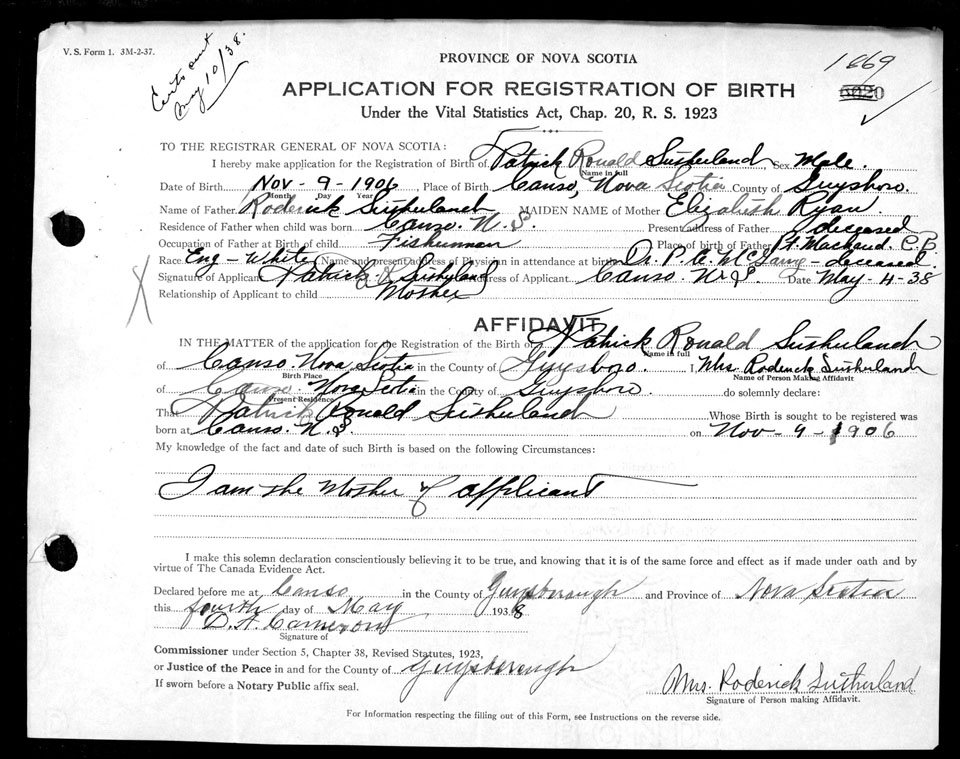 V. S. Form 1. 3M-2-37.
Certs sent
May 10/38.
PROVINCE OF NOVA SCOTIA
1869
APPLICATION FOR REGISTRATION OF BIRTH
Under the Vital Statistics Act, Chap. 20, R. S. 1923
TO THE REGISTRAR GENERAL OF NOVA SCOTIA:
I hereby make application for the Registration of Birth of Patrick Ronald Sutherland Sex Male.
Name in full
Date of Birth Nov - 9 - 1906, Place of Birth Canso, Nova Scotia County of Guysboro.
Month Day Year
Name of Father Roderick Sutherland MAIDEN NAME of Mother Elizabeth Ryan.
Residence of Father when child was born Canso. N. S. Present address of Father deceased
Occupation of Father at Birth of child Fisherman Place of birth of Father C. B.
Race Eng - White Name and present address of Physician in attendance at birth Dr. P. A. - deceased.
Signature of Applicant Patrick R Sutherland Address of Applicant Canso. N. S. Date May - 4 - 38
Relationship of Applicant to child Mother
X
AFFIDAVIT
IN THE MATTER of the application for the Registration of the Birth of Patrick Ronald Sutherland
Name in full
of Canso. Nova Scotia in the County of Guysboro. I, Mrs. Roderick Sutherland
Birth Place Name of Person Making Affidavit
of Canso. Nova Scotia in the County of Guysboro do solemnly declare:
Present Residence
That Patrick Ronald Sutherland Whose Birth is sought to be registered was
born at Canso. N. S. on Nov - 9 - 1906
My knowledge of the fact and date of such Birth is based on the following Circumstances:
I am the Mother of applicant
I make this solemn declaration conscientiously believing it to be true, and knowing that it is of the same force and effect as if made under oath and by
virtue of The Canada Evidence Act.
Declared before me at Canso in the County of Guysborough and Province of Nova Scotia
this fourth day of May 1938
D. A. Cameron
Signature of
Commissioner under Section 5, Chapter 38, Revised Statutes, 1923,
or Justice of the Peace in and for the County of Guysborough
If sworn before a Notary Public affix seal.
Mrs. Roderick Sutherland
Signature of Person making Affidavit.
For Information respecting the filling out of this Form, see Instructions on the reverse side.